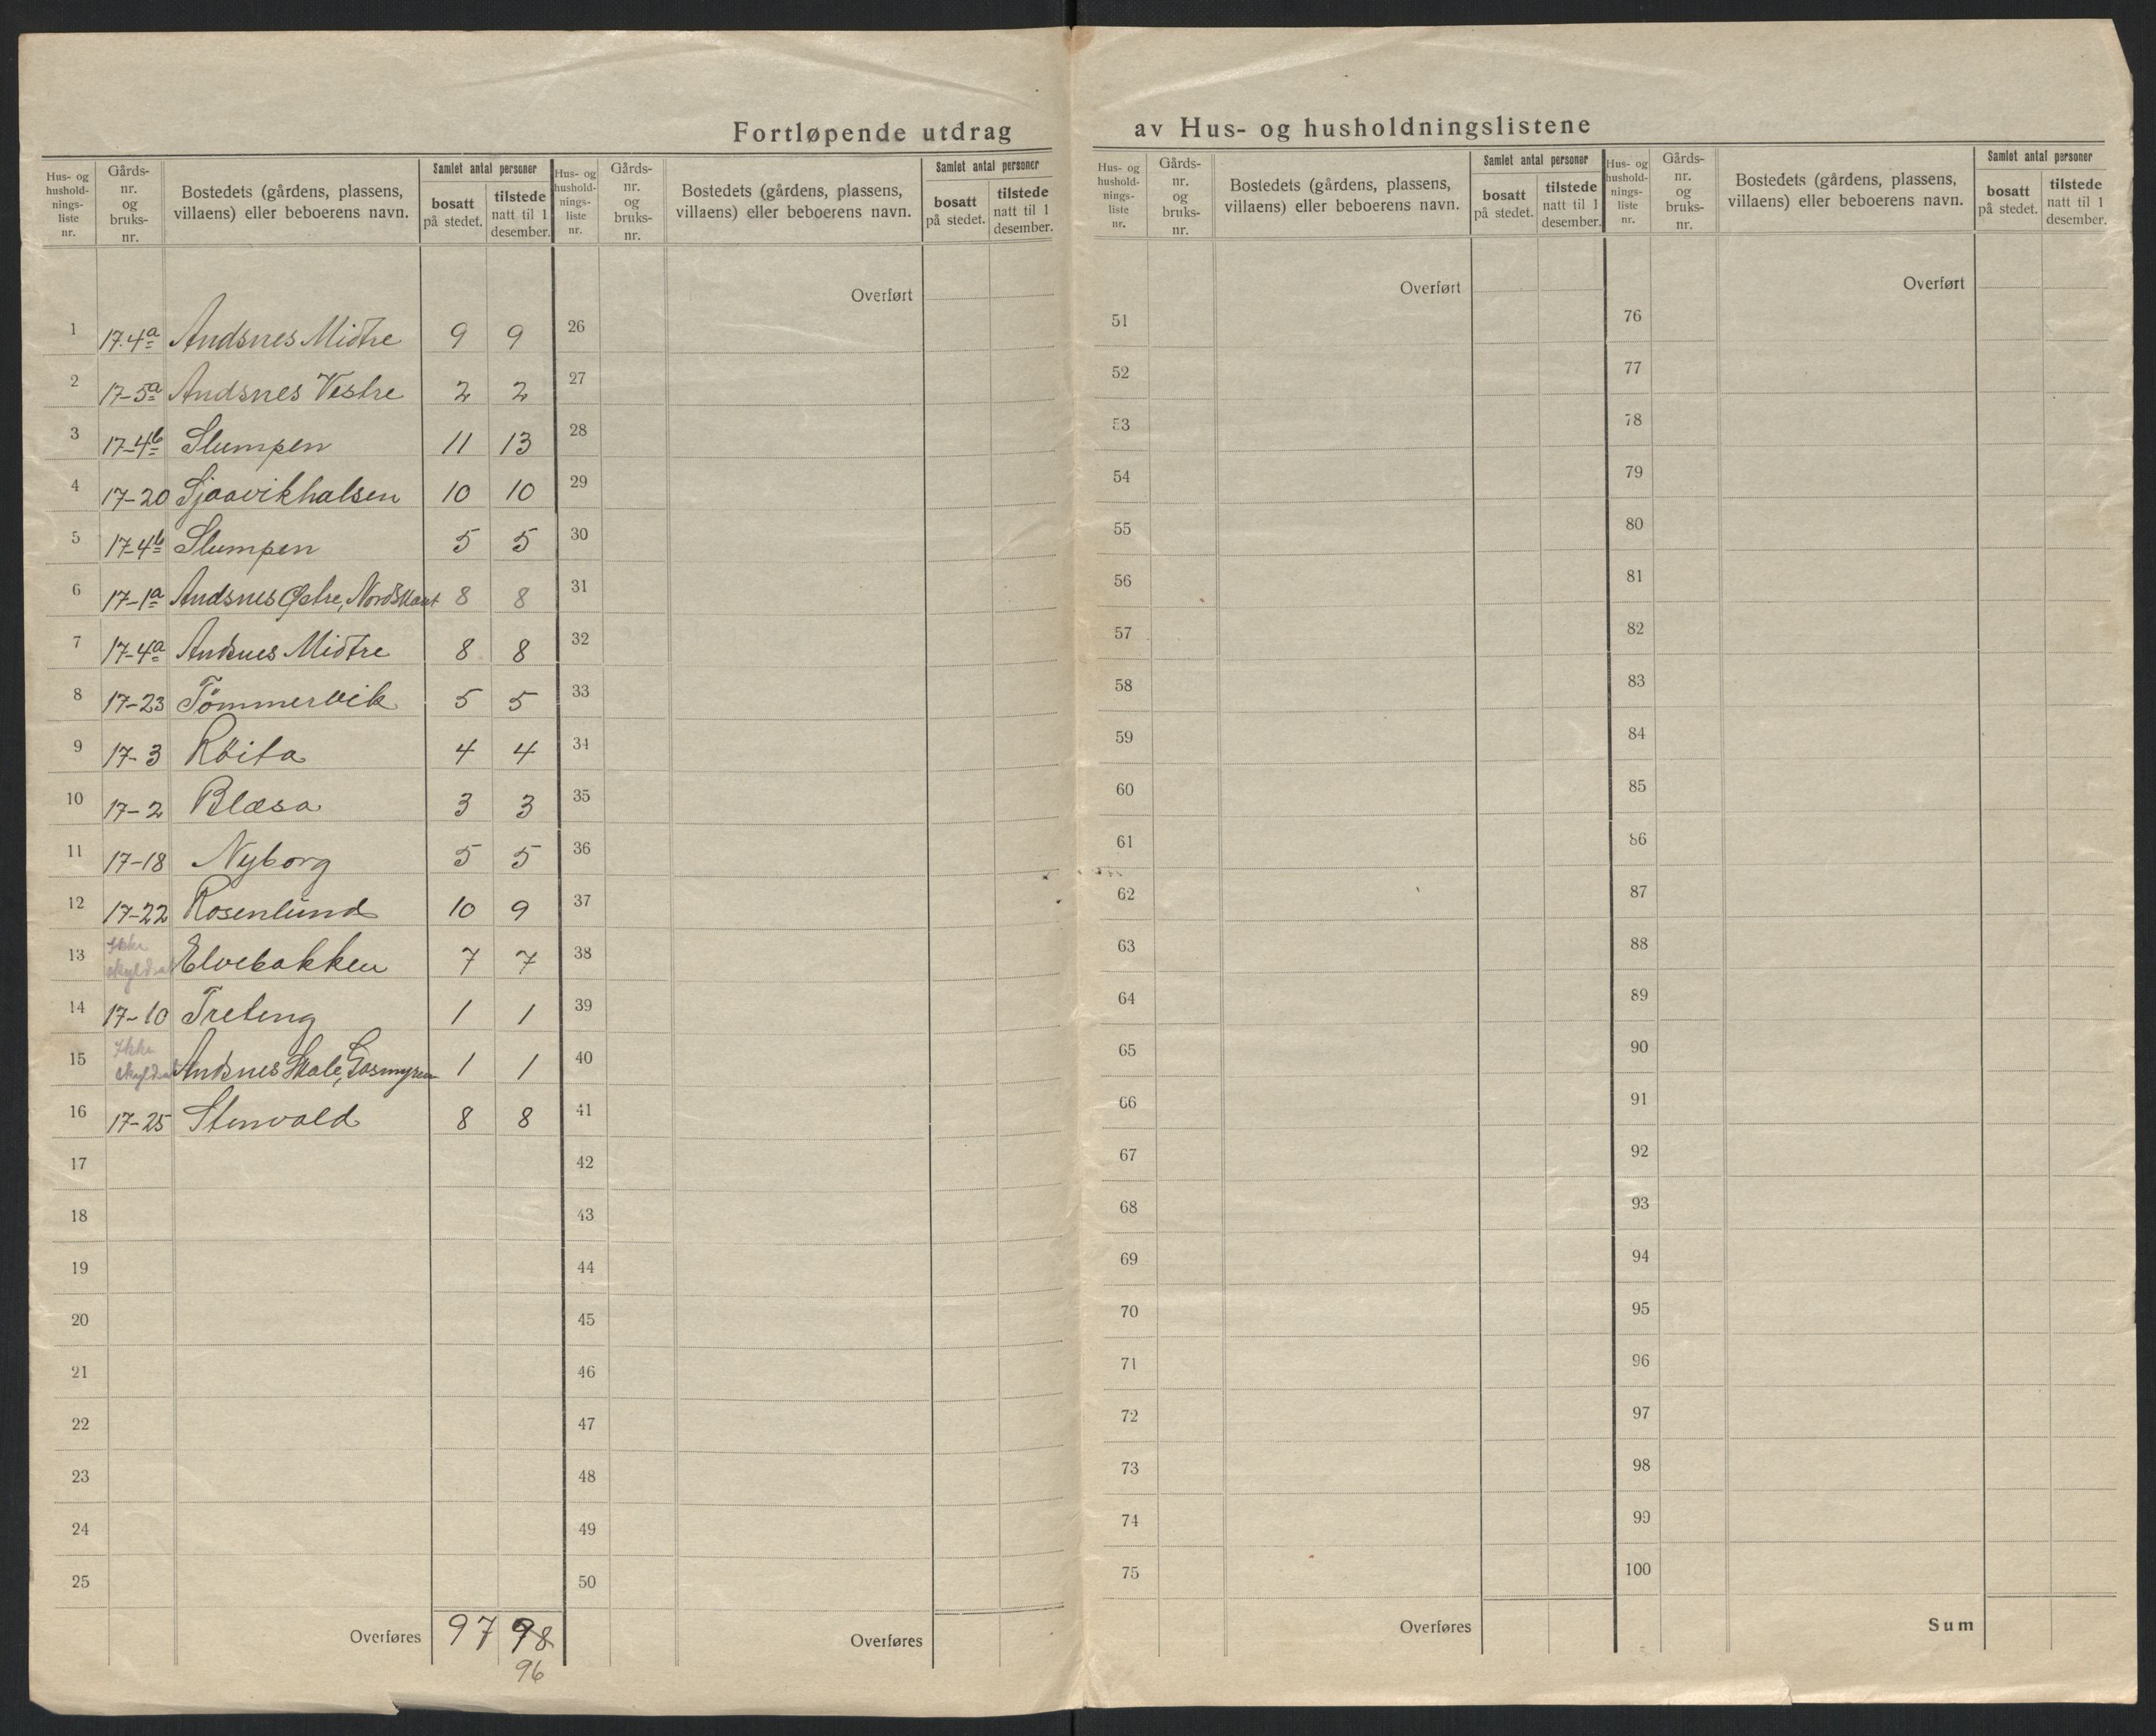 Fortløpende utdrag av Hus- og husholdningslistene
Hus- og hushold-nings-liste nr. | Gårds-nr. og bruks-nr. | Bostedets (gårdens, plassens, villaens) eller beboerens navn. | Samlet antal personer | bosatt på stedet. | tilstede natt til 1 desember.
Hus- og hushold-nings-liste nr. | Gårds-nr. og bruks-nr. | Bostedets (gårdens, plassens, villaens) eller beboerens navn. | Samlet antal personer | bosatt på stedet. | tilstede natt til 1 desember.
Hus- og hushold-nings-liste nr. | Gårds-nr. og bruks-nr. | Bostedets (gårdens, plassens, villaens) eller beboerens navn. | Samlet antal personer | bosatt på stedet. | tilstede natt til 1 desember.
Hus- og hushold-nings-liste nr. | Gårds-nr. og bruks-nr. | Bostedets (gårdens, plassens, villaens) eller beboerens navn. | Samlet antal personer | bosatt på stedet. | tilstede natt til 1 desember.
1 17.4a Andsnes Midtre 9 9
2 17-5a Andsnes Vestre 2 2
3 17-4b Slumpen 11 13
4 17-20 Sjaavikhalsen 10 10
5 17-4b Slumpen 5 5
6 17-1a Andsnes Østre, Nordskaret 8 8
7 17-4a Andsnes Midtre 8 8
8 17-23 Tømmervik 5 5
9 17-3 Røita 4 4
10 17-2 Blæsa 3 3
11 17-18 Nyborg 5 5
12 17-22 Rosenlund 10 9
13 Ikke skyldsat Elvebakken 7 7
14 17-10 Treteng 1 1
15 Ikke skyldsat Andsnes Skole, Gosmyren 1 1
16 17-25 Stenvold 8 8
17
18
19
20
21
22
23
24
25
Overføres 97 98
96
Overført
26
27
28
29
30
31
32
33
34
35
36
37
38
39
40
41
42
43
44
45
46
47
48
49
50
Overføres
Overført
51
52
53
54
55
56
57
58
59
60
61
62
63
64
65
66
67
68
69
70
71
72
73
74
75
Overføres
Overført
76
77
78
79
80
81
82
83
84
85
86
87
88
89
90
91
92
93
94
95
96
97
98
99
100
Sum